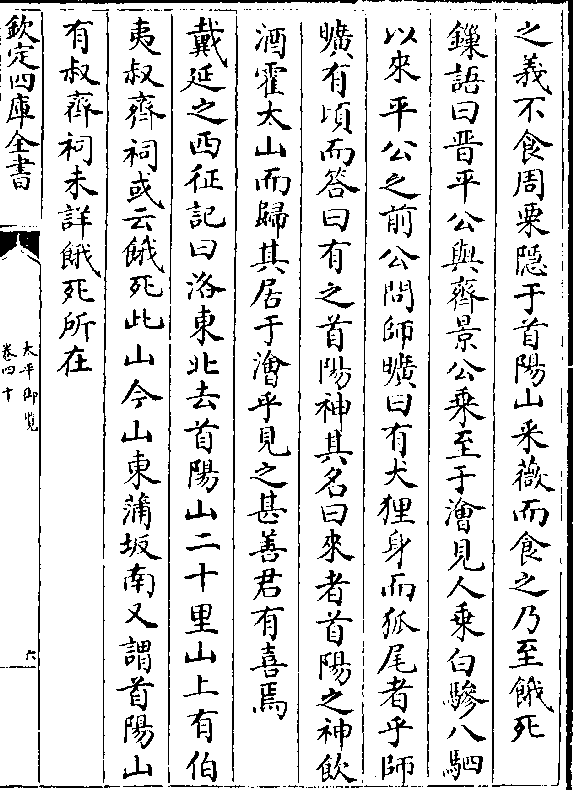 之義不食周粟隠于首陽山采薇而食之乃至餓死
鏁語曰晋平公與齊景公乗至于澮見人乗白驂八駟
以來平公之前公問師曠曰有犬狸身而狐尾者乎師
曠有頃而答曰有之首陽神其名曰來者首陽之神飲
酒霍太山而歸其居于澮乎見之甚善君有喜焉
戴延之西征記曰洛東北去首陽山二十里山上有伯
夷叔齊祠或云餓死此山今山東蒲坂南又謂首陽山
有叔齊祠未詳餓死所在
欽定四庫全書
太平御覧
卷四十
六